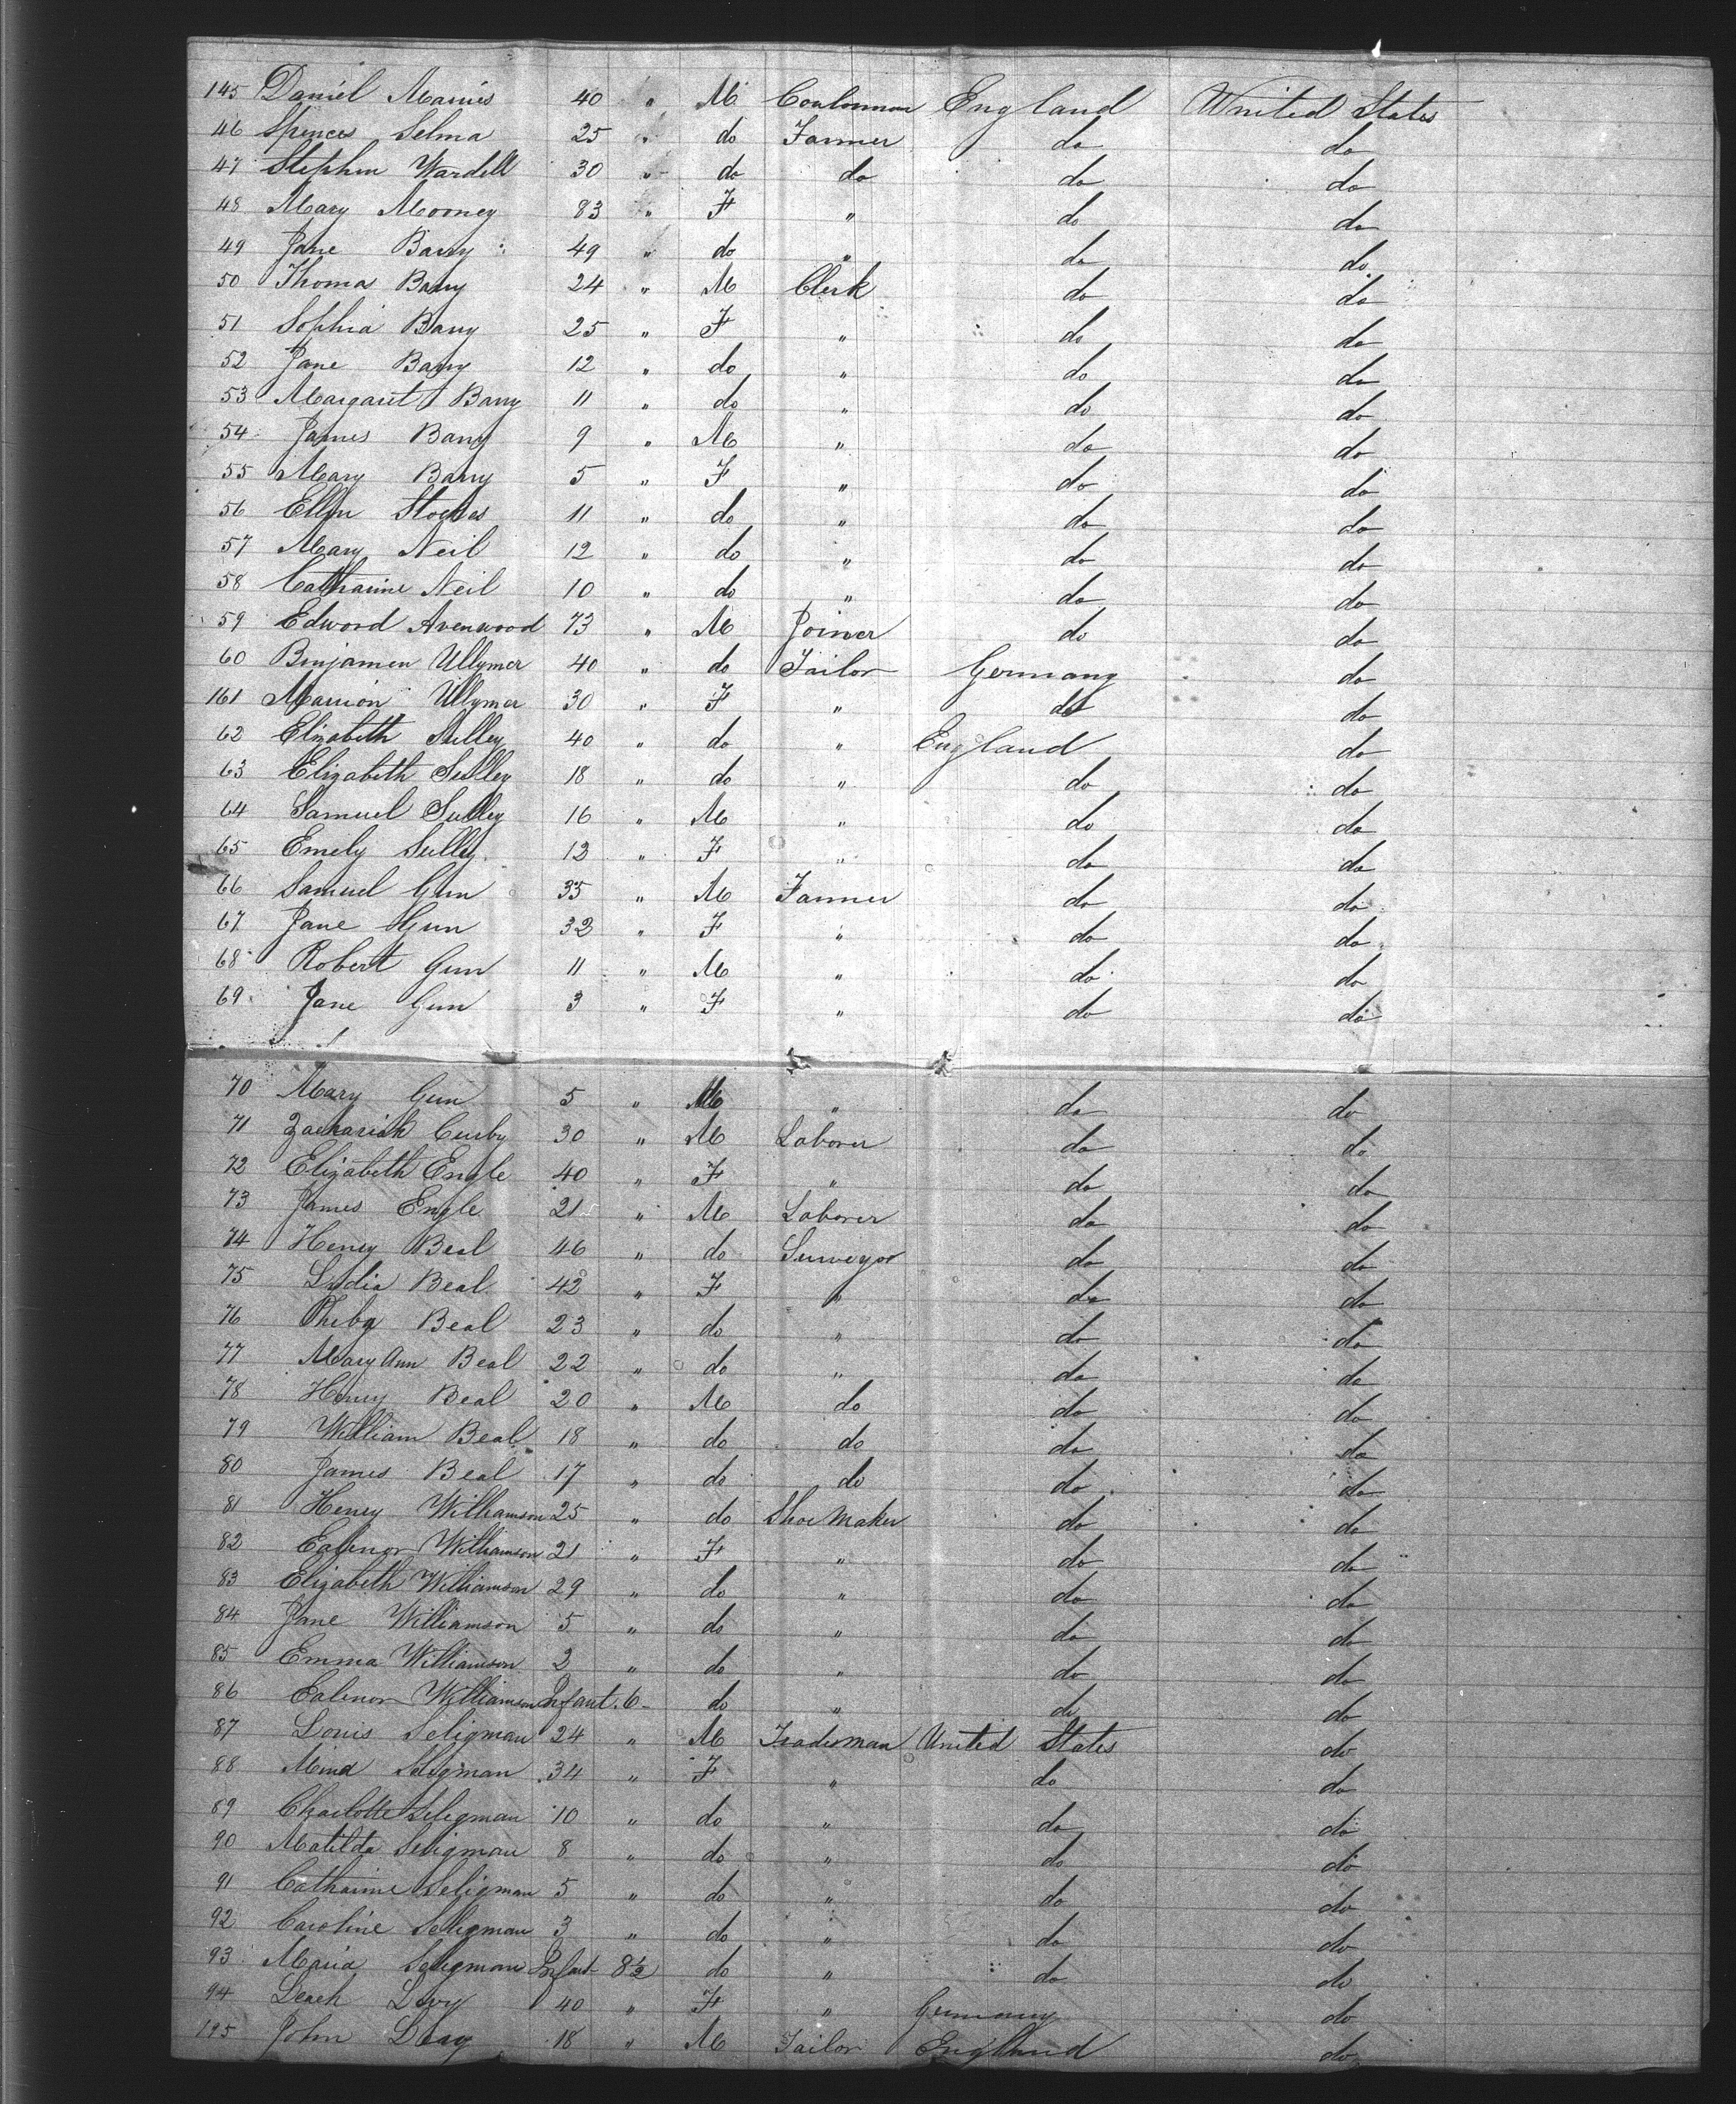 145 Daniel Mannis 40 " M England United States
46 Spences Selma 25 " do Farmer do do
47 Stephen Wardell 30 " do do do do
48 Mary Mooney 83 " F " do do
49 Jane Barry 49 " do " do do
50 Thomas Barry 24 " M Clerk do do
51 Sophia Barry 25 " F " do do
52 Jane Barry 12 " do " do do
53 Margaret Barry 11 " do " do do
54 James Barry 9 " M " do do
55 Mary Barry 5 " F " do do
56 Ellen Stockes 11 " do " do do
57 Mary Neil 12 " do " do do
58 Catharine Neil 10 " do " do do
59 Edword Avenwood 73 " M Joiner do do
60 Benjamen Ullymer 40 " do Tailor Germany do
161 Marrion Ullymer 30 " F " do do
62 Elizabeth Sulley 40 " do " England do
63 Elizabeth Sulley 18 " do " do do
64 Samuel Sulley 16 " M " do do
65 Emely Sulley 12 " F " do do
66 Samuel Gun 35 " M Farmer do do
67 Jane Gun 32 " F " do do
68 Robert Gun 11 " M " do do
69 Jane Gun 3 " F " do do
70 Mary Gun 5 " M " do do
71 Zachariah Curby 30 " M Laborer do do
72 Elizabeth Engle 40 " F " do do
73 James Engle 21 " M Laborer do do
74 Heney Beal 46 " do Surveyor do do
75 Lydia Beal 42 " F " do do
76 Pheba Beal 23 " do " do do
77 Mary Ann Beal 22 " do " do do
78 Heney Beal 20 " M do do do
79 William Beal 18 " do do do do
80 James Beal 17 " do do do do
81 Heney Williamson 25 " do Shoe Maker do do
82 Ealenor Williamson 21 " F " do do
83 Elizabeth Williamson 29 " do " do do
84 Jane Williamson 5 " do " do do
85 Emma Williamson 2 " do " do do
86 Ealenor Williamson Infant 6 do " do do
87 Louis Seligman 24 " M Tradesman United States do
88 Mina Seligman 34 " F " do do
89 Charlotte Seligman 10 " do " do do
90 Matilda Seligman 8 " do " do do
91 Catharine Seligman 5 " do " do do
92 Caroline Seligman 3 " do " do do
93 Maria Seligman Infant 8½ do " do do
94 Leach Levy 40 " F " Germany do
195 John 18 " M Tailor England do